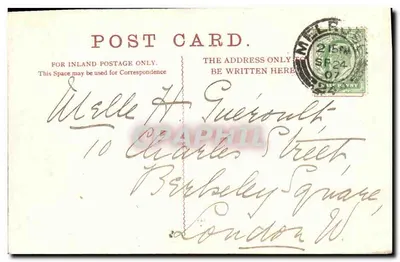 POST CARD.
FOR INLAND POSTAGE ONLY.
This Space may be used for Correspondence
THE ADDRESS ONLY
BE WRITTEN HERE
MELBOU
SP 24
07
Melle H. Guéroult
10 Charles Street,
Berkeley Square,
London W.